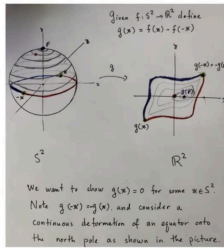 given f: S² → ℝ² define
g(x) = f(x) - f(-x)
g
g(-x) = -g(x)
g(x)
S²
ℝ²
We want to show g(x) = 0 for some x ∈ S².
Note g(-x) = -g(x), and consider a
continuous deformation of an equator onto
the north pole as shown in the picture.